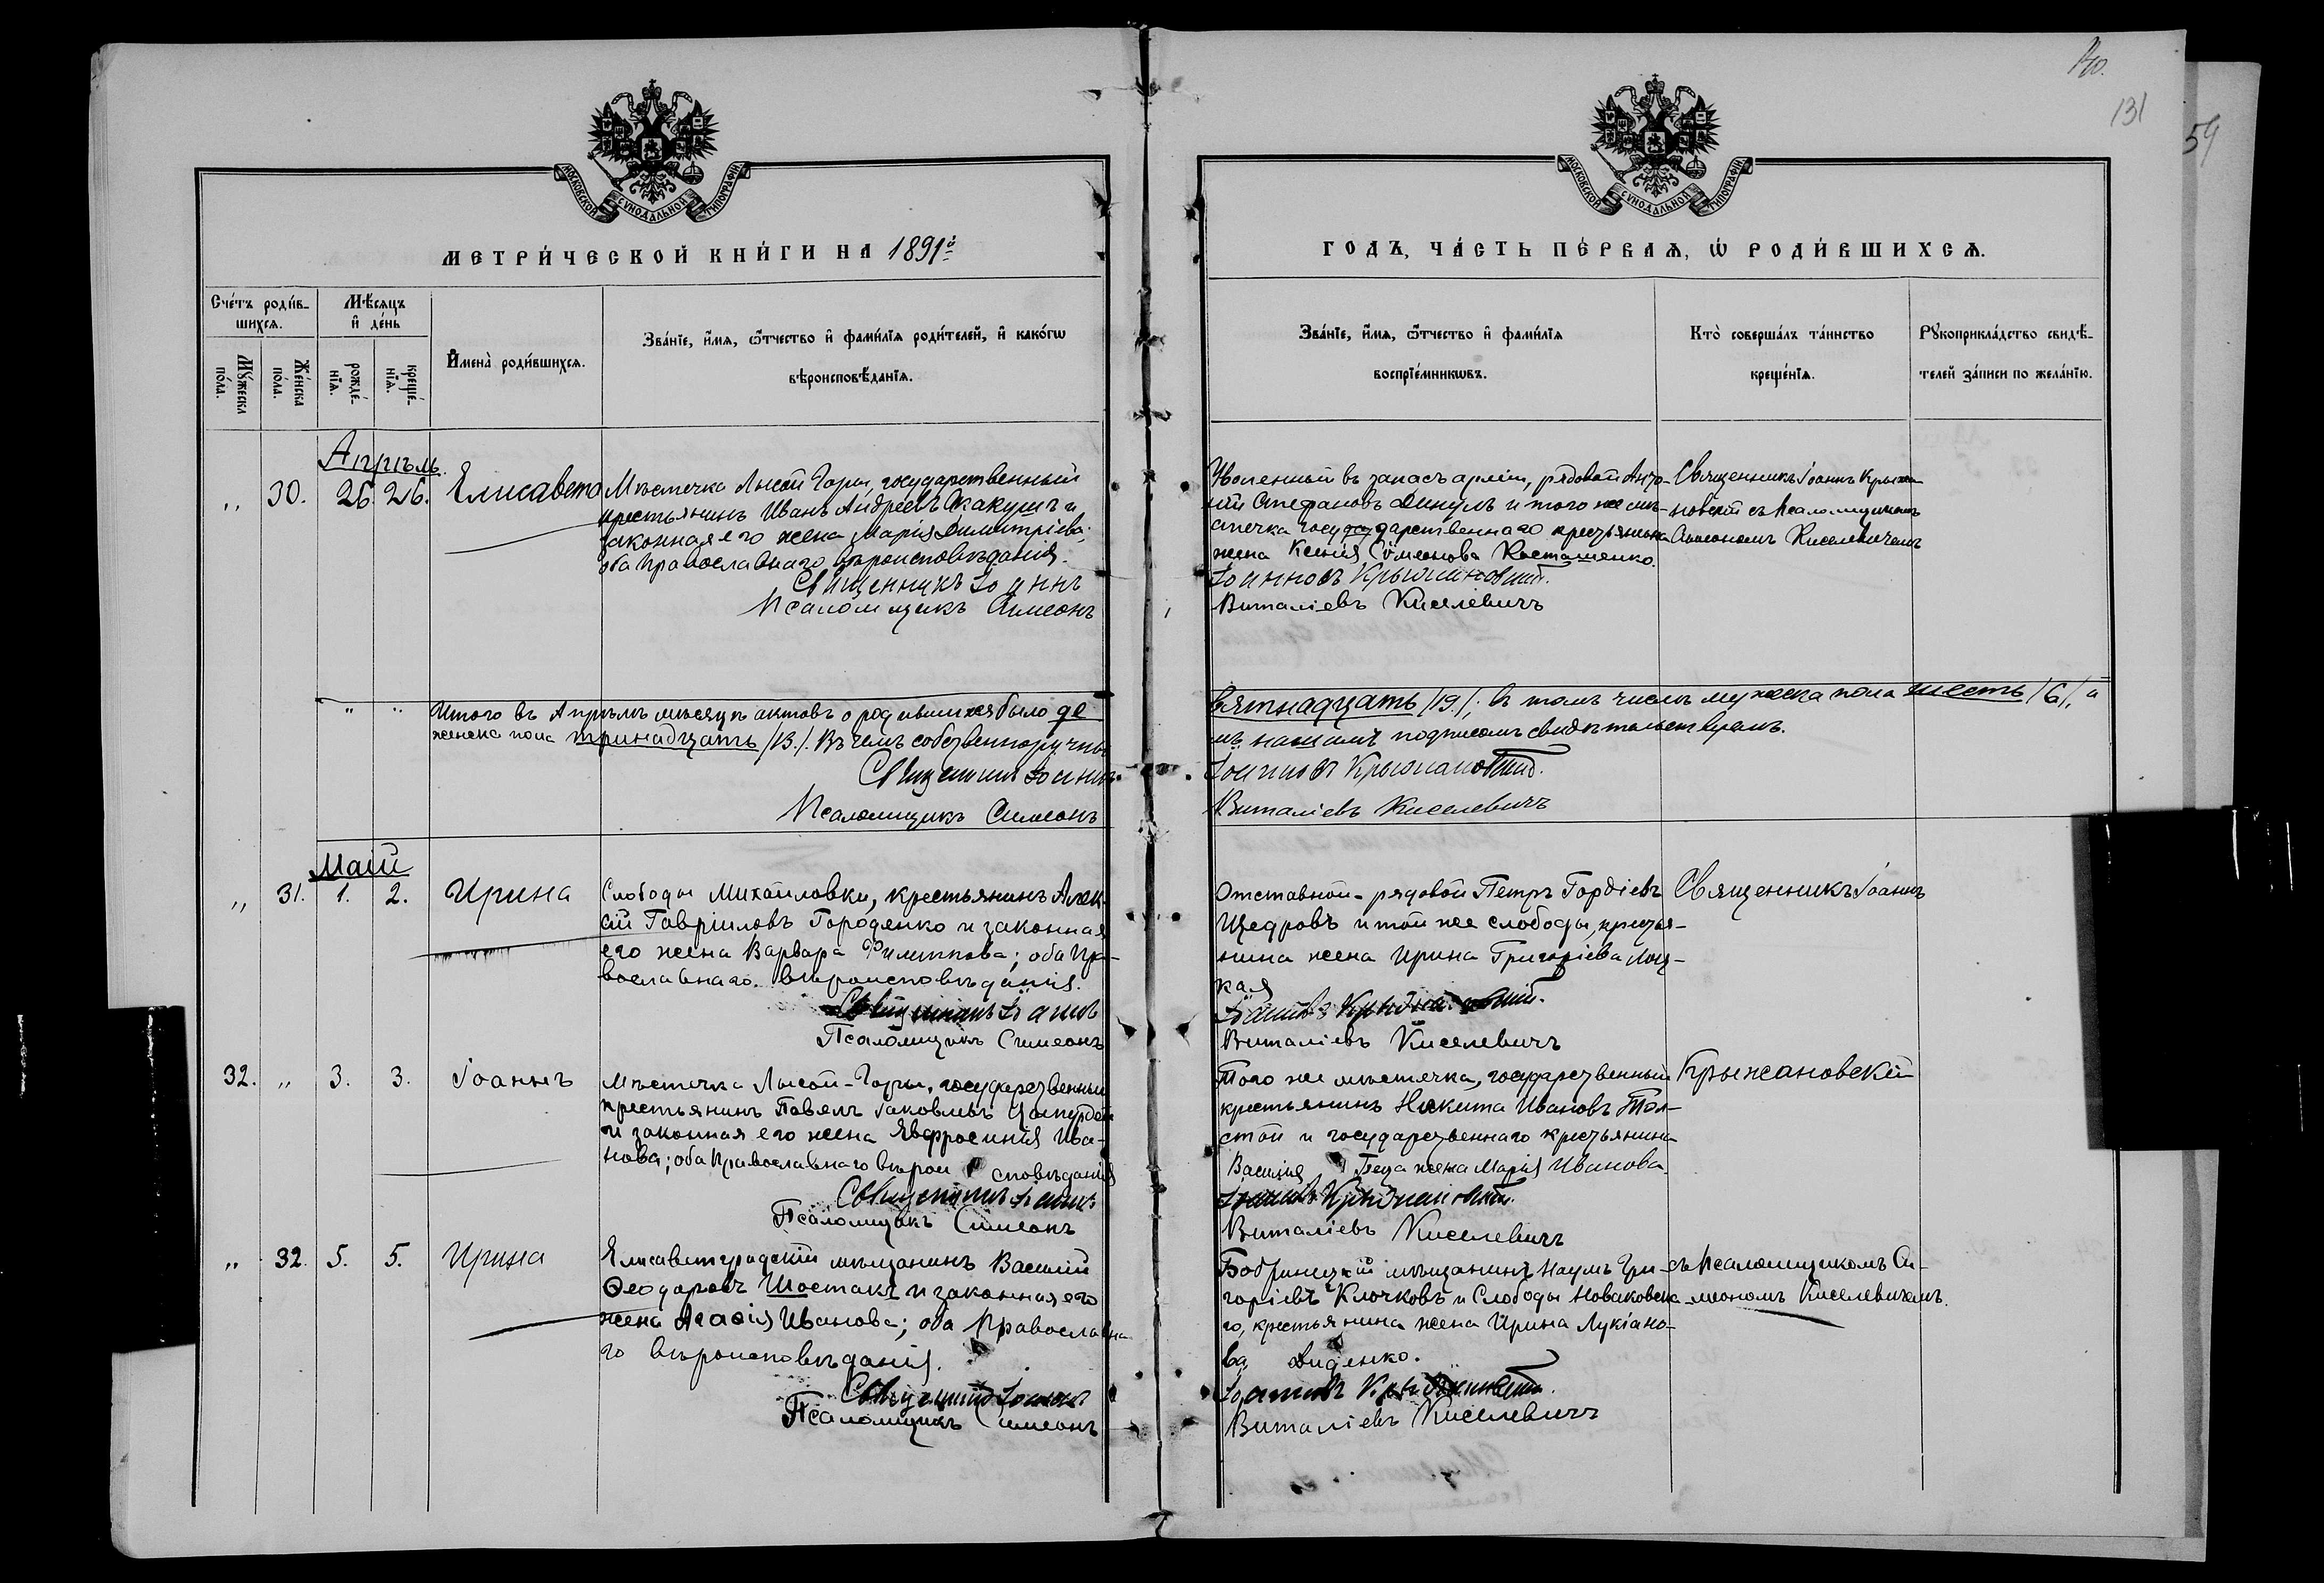 140.
131
54
МОСКОВСКОЙ СУНОДАЛЬНОЙ ТИПОГРАФІИ
МЕТРИ́ЧЕСКОЙ КНИ́ГИ НА 1891й
Сче́тъ роди́в-
шихсѧ.
Мѣ́сѧцъ
и҆ де́нь
Мꙋ́жеска
по́ла.
Же́нска
по́ла.
рожде́-
нїѧ.
креще́-
нїѧ.
И҆мена̀ роди́вшихсѧ.
Зва́нїе, и҆́мѧ, ѻ҆́тчество и҆ фами́лїѧ роди́телей, и҆ како́гѡ
вѣроисповѣ́данїѧ.
Апрѣль.
„ 30. 26. 26. Елисавета
Мѣстечка Лысой Горы, государственный
крестьянинъ Иванъ Андреевъ Скакушъ и
законная его жена Марія Димитріева;
оба Православнаго вѣроисповѣданія.
Священникъ Іоаннъ
Псаломщикъ Симеонъ
" " Итого въ Апрѣлѣ мѣсяцѣ актовъ о родившихся было де
женска пола тринадцать /13./. Въ чемъ собственноручны
Священникъ Іоаннъ
Псаломщикъ Симеонъ
Маій
„ 31. 1. 2. Ирина
Слободы Михайловки, крестьянинъ Алек
сій Гавріиловъ Городенко и законная
его жена Варвара Филиппова; оба Пра-
вославнаго вѣроисповѣданія.
Священникъ Іоаннъ
Псаломщикъ Симеонъ
32. „ 3. 3. Іоаннъ
Мѣстечка Лысой-Горы, государственный
крестьянинъ Павелъ Іаковлевъ
и законная его жена Евфросинія Ива-
нова; оба Православнаго вѣрои сповѣданія
Священникъ Іоаннъ
Псаломщикъ Симеонъ
„ 32. 5. 5. Ирина
Елисаветградскій мѣщанинъ Василій
Ѳеодоровъ Шостакъ и законная его
жена Агаѳія Иванова; оба Православна
го вѣроисповѣданія.
Священникъ Іоаннъ
Псаломщикъ Симеонъ
МОСКОВСКОЙ СУНОДАЛЬНОЙ ТИПОГРАФІИ
ГОДЪ, ЧА́СТЬ ПЕ́РВАѦ, Ѡ҆ РОДИ́ВШИХСѦ.
Зва́нїе, и҆́мѧ, ѻ҆́тчество и҆ фами́лїѧ
воспрїе́мникѡвъ.
Кто̀ соверша́лъ та́инство
креще́нїѧ.
Рꙋкоприкла́дство свидѣ́-
телей за́писи по жела́нїю.
Уволенный въ запасъ арміи, рядовой Анто-
ній Стефановъ Динулъ и того же мѣ-
стечка государственнаго крестьянина
жена Ксенія Симеонова Косташенко.
Іоанновъ Крыжановскій.
Виталіевъ Киселевичъ
Священникъ Іоаннъ Крыжа
новскій съ Псаломщикомъ
Симеономъ Киселевичемъ
вятнадцать /19./; въ томъ числѣ мужеска пола шесть /6/, а
мъ нашимъ подписомъ свидѣтельствуемъ.
Іоанновъ Крыжановскій.
Виталіевъ Киселевичъ
Отставной-рядовой Петръ Гордіевъ
Щедровъ и той же слободы, крестья-
нина жена Ирина Григоріева Лоц-
кая
Іоанновъ Крыжановскій.
Виталіевъ Киселевичъ
Священникъ Іоаннъ
Того же мѣстечка, государственный
крестьянинъ Никита Ивановъ Тол-
стой и государственнаго крестьянина
Василія жена Марія Иванова.
Іоанновъ Крыжановскій.
Виталіевъ Киселевичъ
Крыжановскій
Бобринецкій мѣщанинъ Наумъ Гри-
горіевъ Клочковъ и Слободы Новаковска
го, крестьянина жена Ирина Лукіано-
ва Диденко.
Іоанновъ Крыжановскій.
Виталіевъ Киселевичъ
съ Псаломщикомъ Си-
меономъ Киселевичемъ.